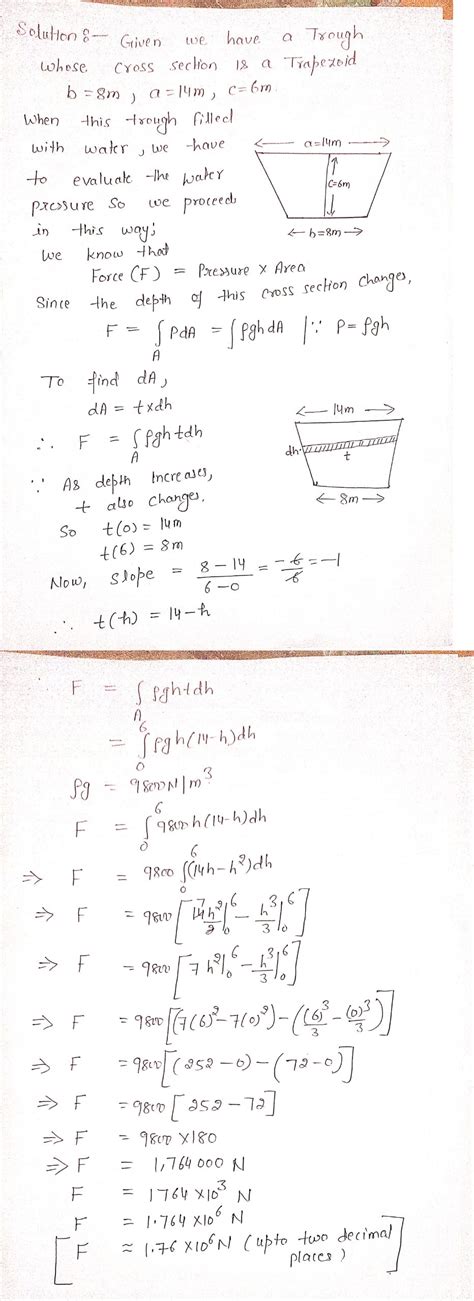 Solution :- Given we have a Trough
whose cross section is a Trapezoid
b = 8m, a = 14m, c = 6m.
When this trough filled
with water, we have
to evaluate the water
pressure so we proceed
in this way;
← a=14m →
c=6m
← b=8m →
We know that
Force (F) = Pressure × Area
Since the depth of this cross section changes,
F = ∫_A PdA = ∫ρghdA | ∵ P = ρgh
To find dA,
dA = t×dh
∴ F = ∫_A ρghtdh
∵ As depth Increases,
t also changes.
← 14m →
dh
t
← 8m →
So t(0) = 14m
t(6) = 8m
Now, slope = (8-14)/(6-0) = -6/6 = -1
∴ t(h) = 14-h
F = ∫_A ρghtdh
= ∫_0^6 ρgh(14-h)dh
ρg = 9800N/m³
F = ∫_0^6 9800h(14-h)dh
⇒ F = 9800 ∫_0^6 (14h-h²)dh
⇒ F = 9800 [14h²/2|_0^6 - h³/3|_0^6]
⇒ F = 9800 [7h²|_0^6 - h³/3|_0^6]
⇒ F = 9800 [(7(6)²-7(0)²) - ((6)³/3 - (0)³/3)]
⇒ F = 9800 [(252-0) - (72-0)]
⇒ F = 9800 [252-72]
⇒ F = 9800 × 180
⇒ F = 1,764000 N
F = 1764 ×10³ N
F = 1.764 ×10⁶ N
[F ≈ 1.76 ×10⁶ N (upto two decimal places)]